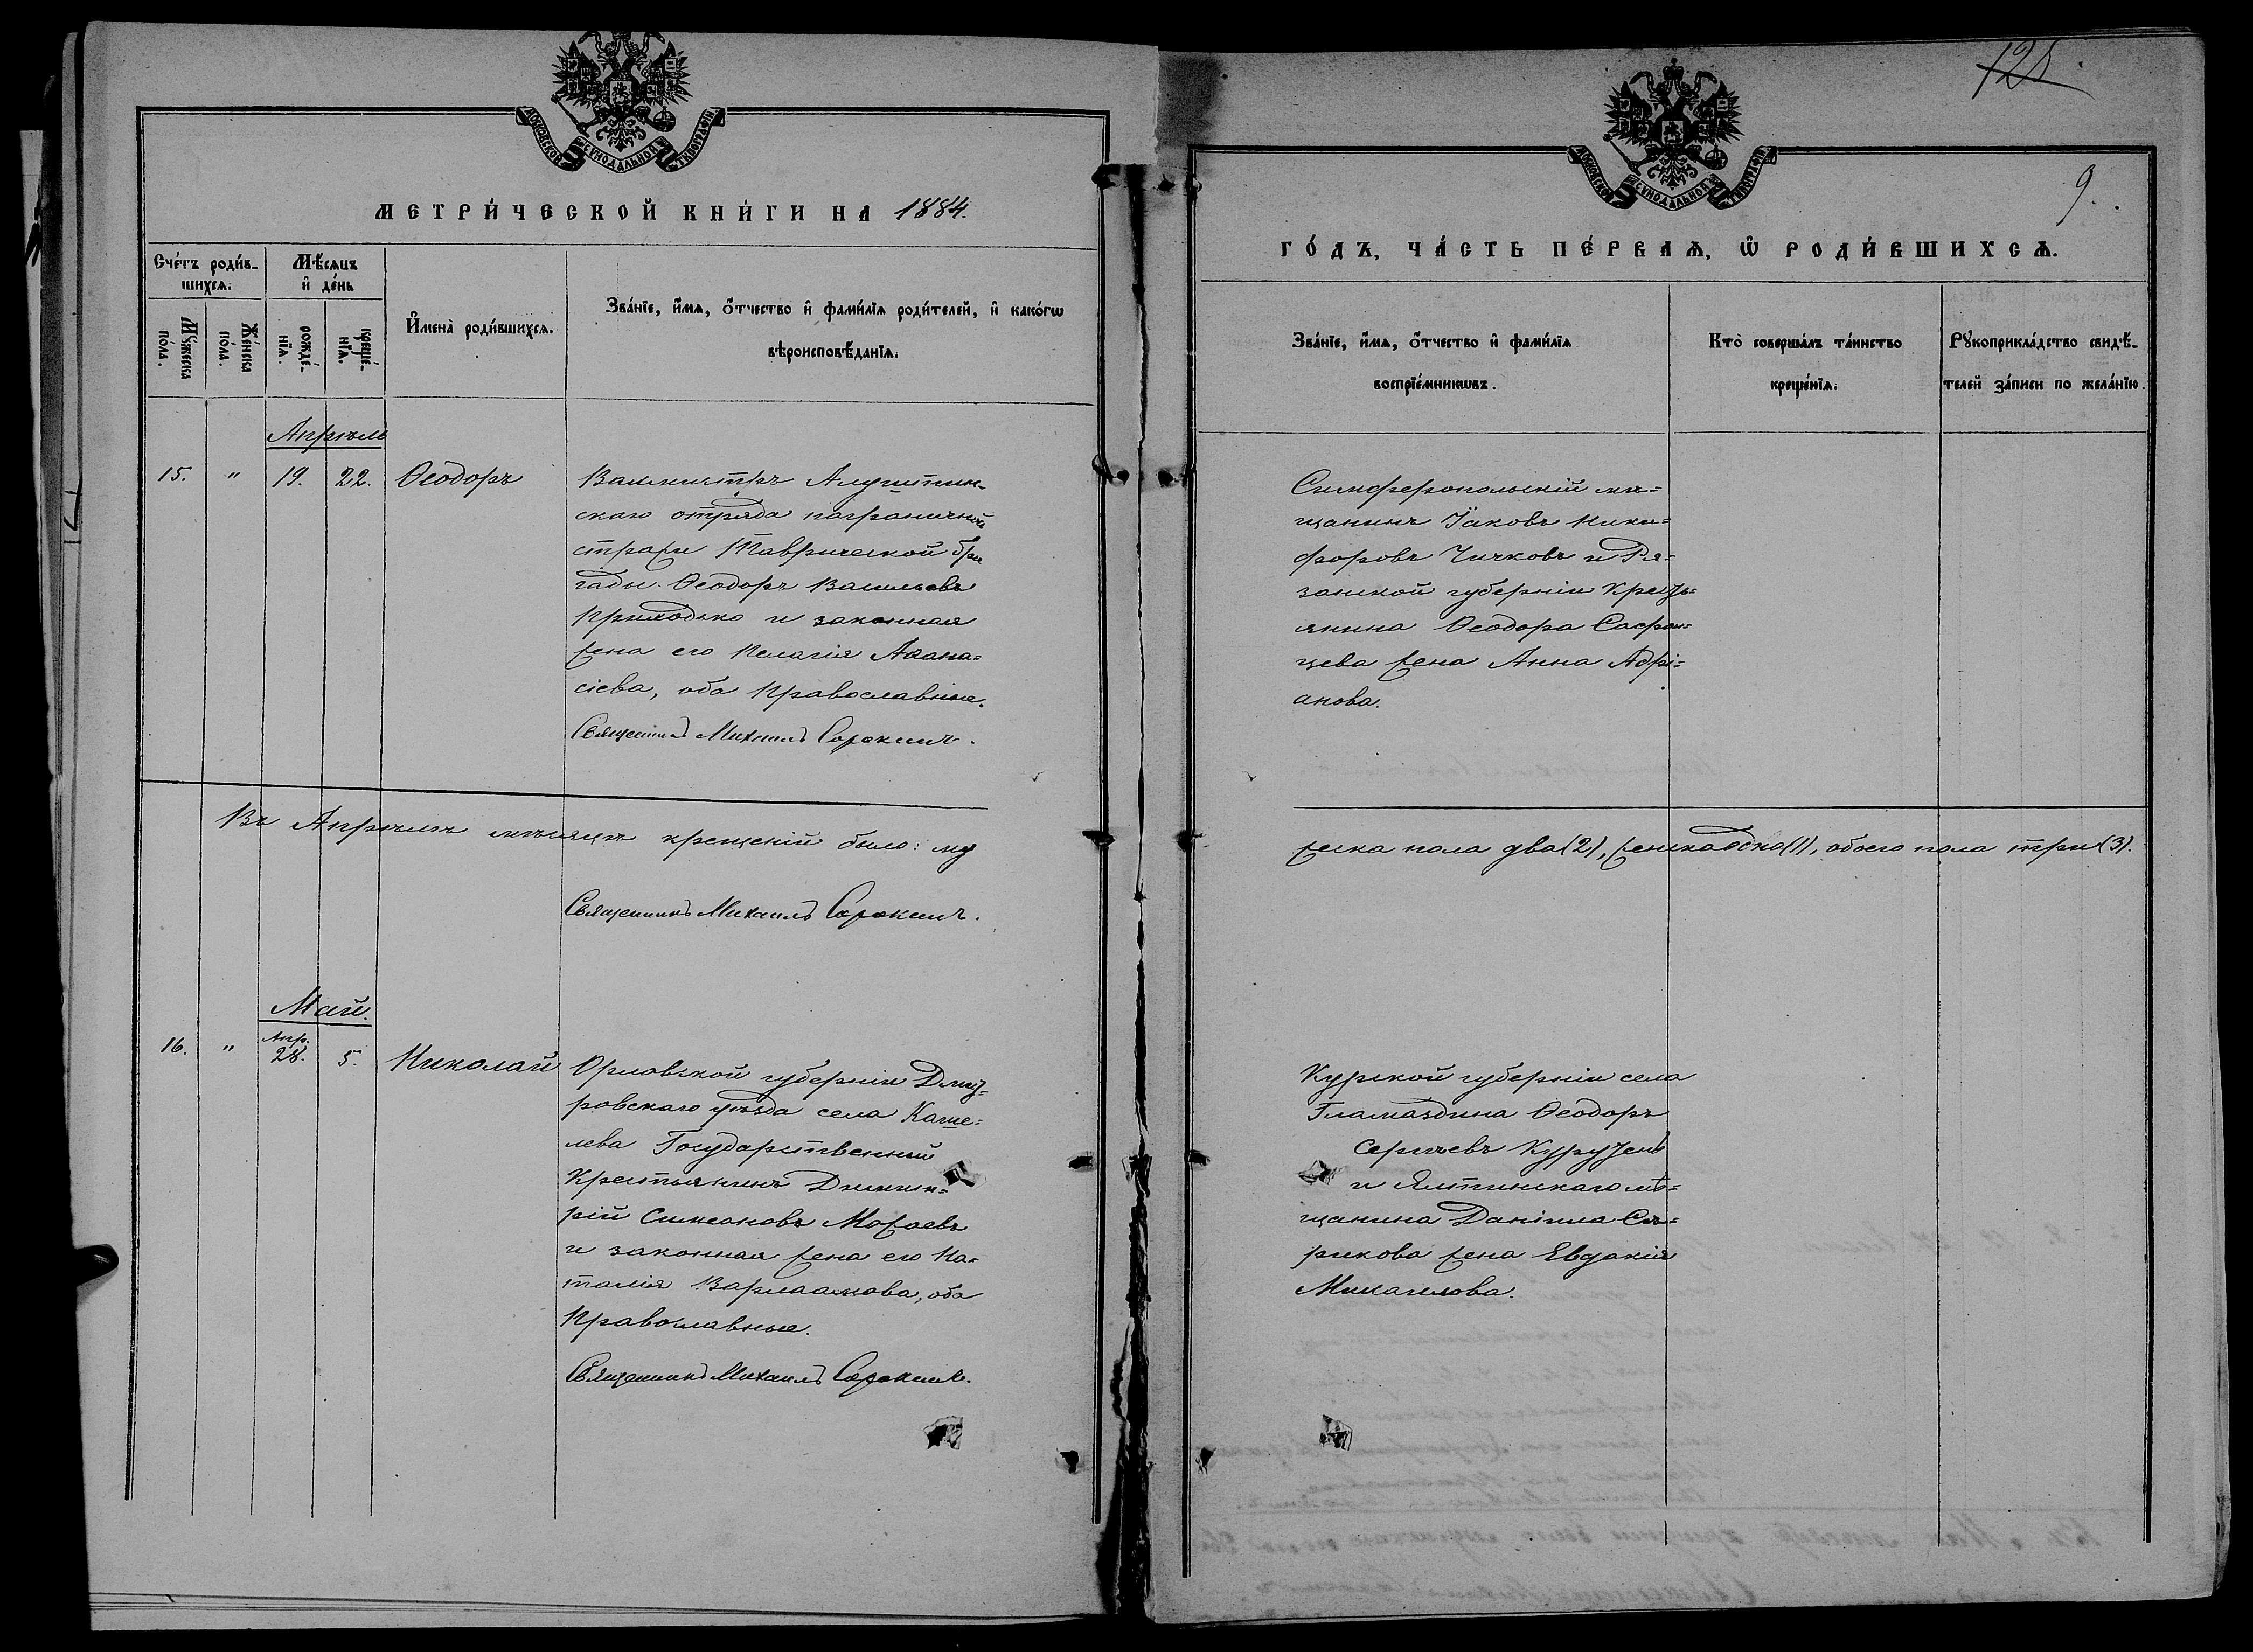 МОСКОВСКОЙ СУНОДАЛЬНОЙ ТУПОГРАФІИ
МЕТРИ́ЧЕСКОЙ КНИ́ГИ НА 1884.
Сче́тъ роди́в-
шихсѧ.
Мѣ́сѧцъ
и҆ де́нь
Мꙋ́жеска
по́ла.
Же́нска
по́ла.
рожде́-
нїѧ.
креще́-
нїѧ.
И҆мена̀ роди́вшихсѧ.
Зва́нїе, и҆́мѧ, ѻ҆́тчество и҆ фами́лїѧ роди́телей, и҆ како́гѡ
вѣроисповѣ́данїѧ.
Апрѣль
15. " 19. 22. Ѳеодоръ
Вахмистръ Алуштин-
скаго отряда пограничной
стражи Таврической бри
гады Ѳеодоръ Васильевъ
Приходько и законная
жена его Пелагія Аѳана=
сіева, оба Православные.
Священникъ Михаилъ Сорокинъ.
Въ Апрѣлѣ мѣсяцѣ крещеній было: му
Священникъ Михаилъ Сорокинъ.
Май.
16. " Апр. 28. 5. Николай
Орловской губерніи Дмит-
ровскаго уѣзда села Каше=
лева Государственный
Крестьянинъ Димит=
рій Симеоновъ Можаевъ
и законная жена его На=
талія Варлаамова, оба
Православные.
Священникъ Михаилъ Сорокинъ.
128
МОСКОВСКОЙ СУНОДАЛЬНОЙ ТУПОГРАФІИ
9.
ГО́ДЪ, ЧА́СТЬ ПЕ́РВАѦ, Ѽ РОДИ́ВШИХСѦ.
Зва́нїе, и҆́мѧ, ѻ҆́тчество и҆ фами́лїѧ
воспрїе́мникѡвъ.
Кто̀ соверша́лъ та́инство
креще́нїѧ.
Рꙋкоприкла́дство свидѣ́-
телей за́писи по жела́нїю.
Симферопольскій мѣ=
щанинъ Іаковъ Ники=
форовъ Чичковъ и Ря=
занской губерніи Кресть=
янина Ѳеодора Сафон=
цева жена Анна Адрі=
анова.
жеска пола два (2), женска одно (1), обоего пола три (3).
Курской губерніи села
Гламаздина Ѳеодоръ
Сергѣевъ
и Ялтинскаго мѣ=
щанина Даніила Сѣ=
рикова жена Евдокія
Михаилова.